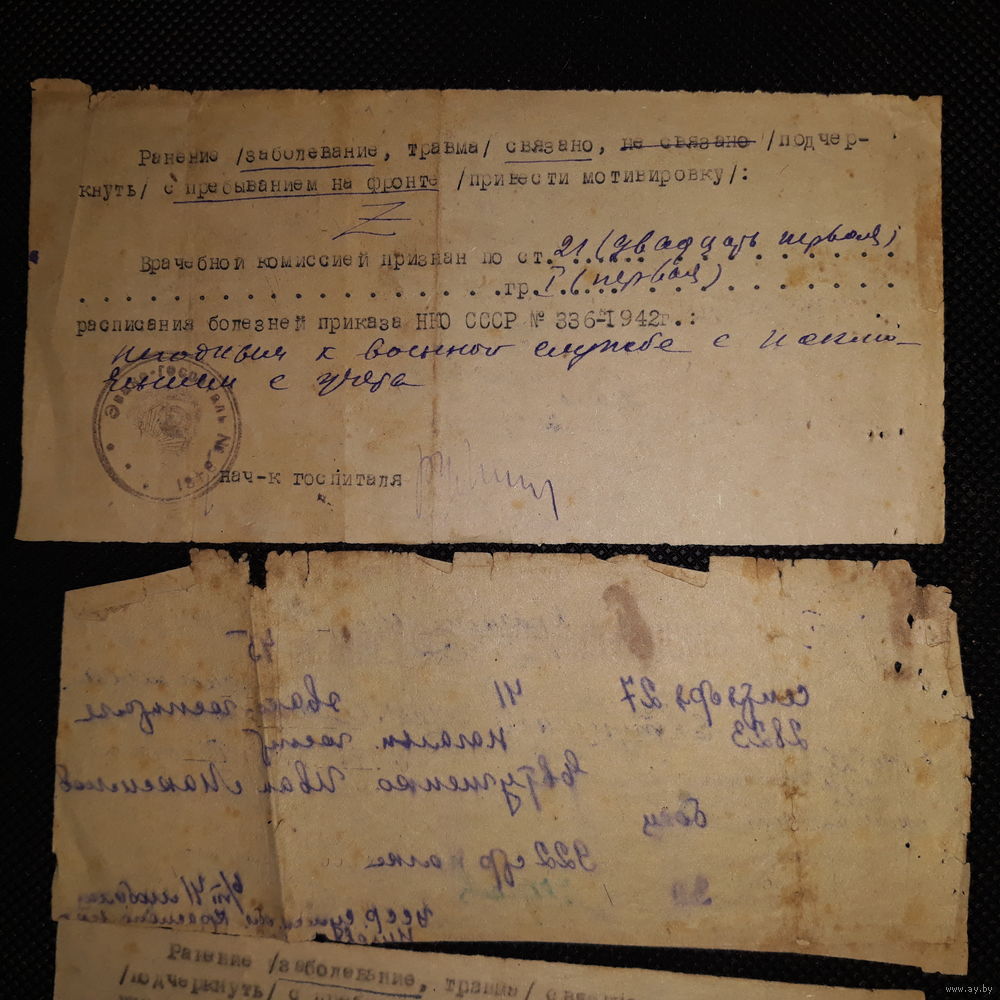 Ранение /заболевание, травма/ связано, не связано /подчер-
кнуть/ с пребыванием на фронте /привести мотивировку/:
Z
Врачебной комиссией признан по ст. 21 (двадцать первая)
гр. I (первая)
расписания болезней приказа НКО СССР № 336-1942г.:
негодным к военной службе с исклю-
чением с учета
Эвако-госпиталь №
нач-к госпиталя
45
сентября 27 41 эвако госпитале
2823 Начальн. госп
Евтушенко Иван Максимов
боец
922 стр полка
Ранение /заболевание, травма/
/подчеркнуть/ с
www.ay.by